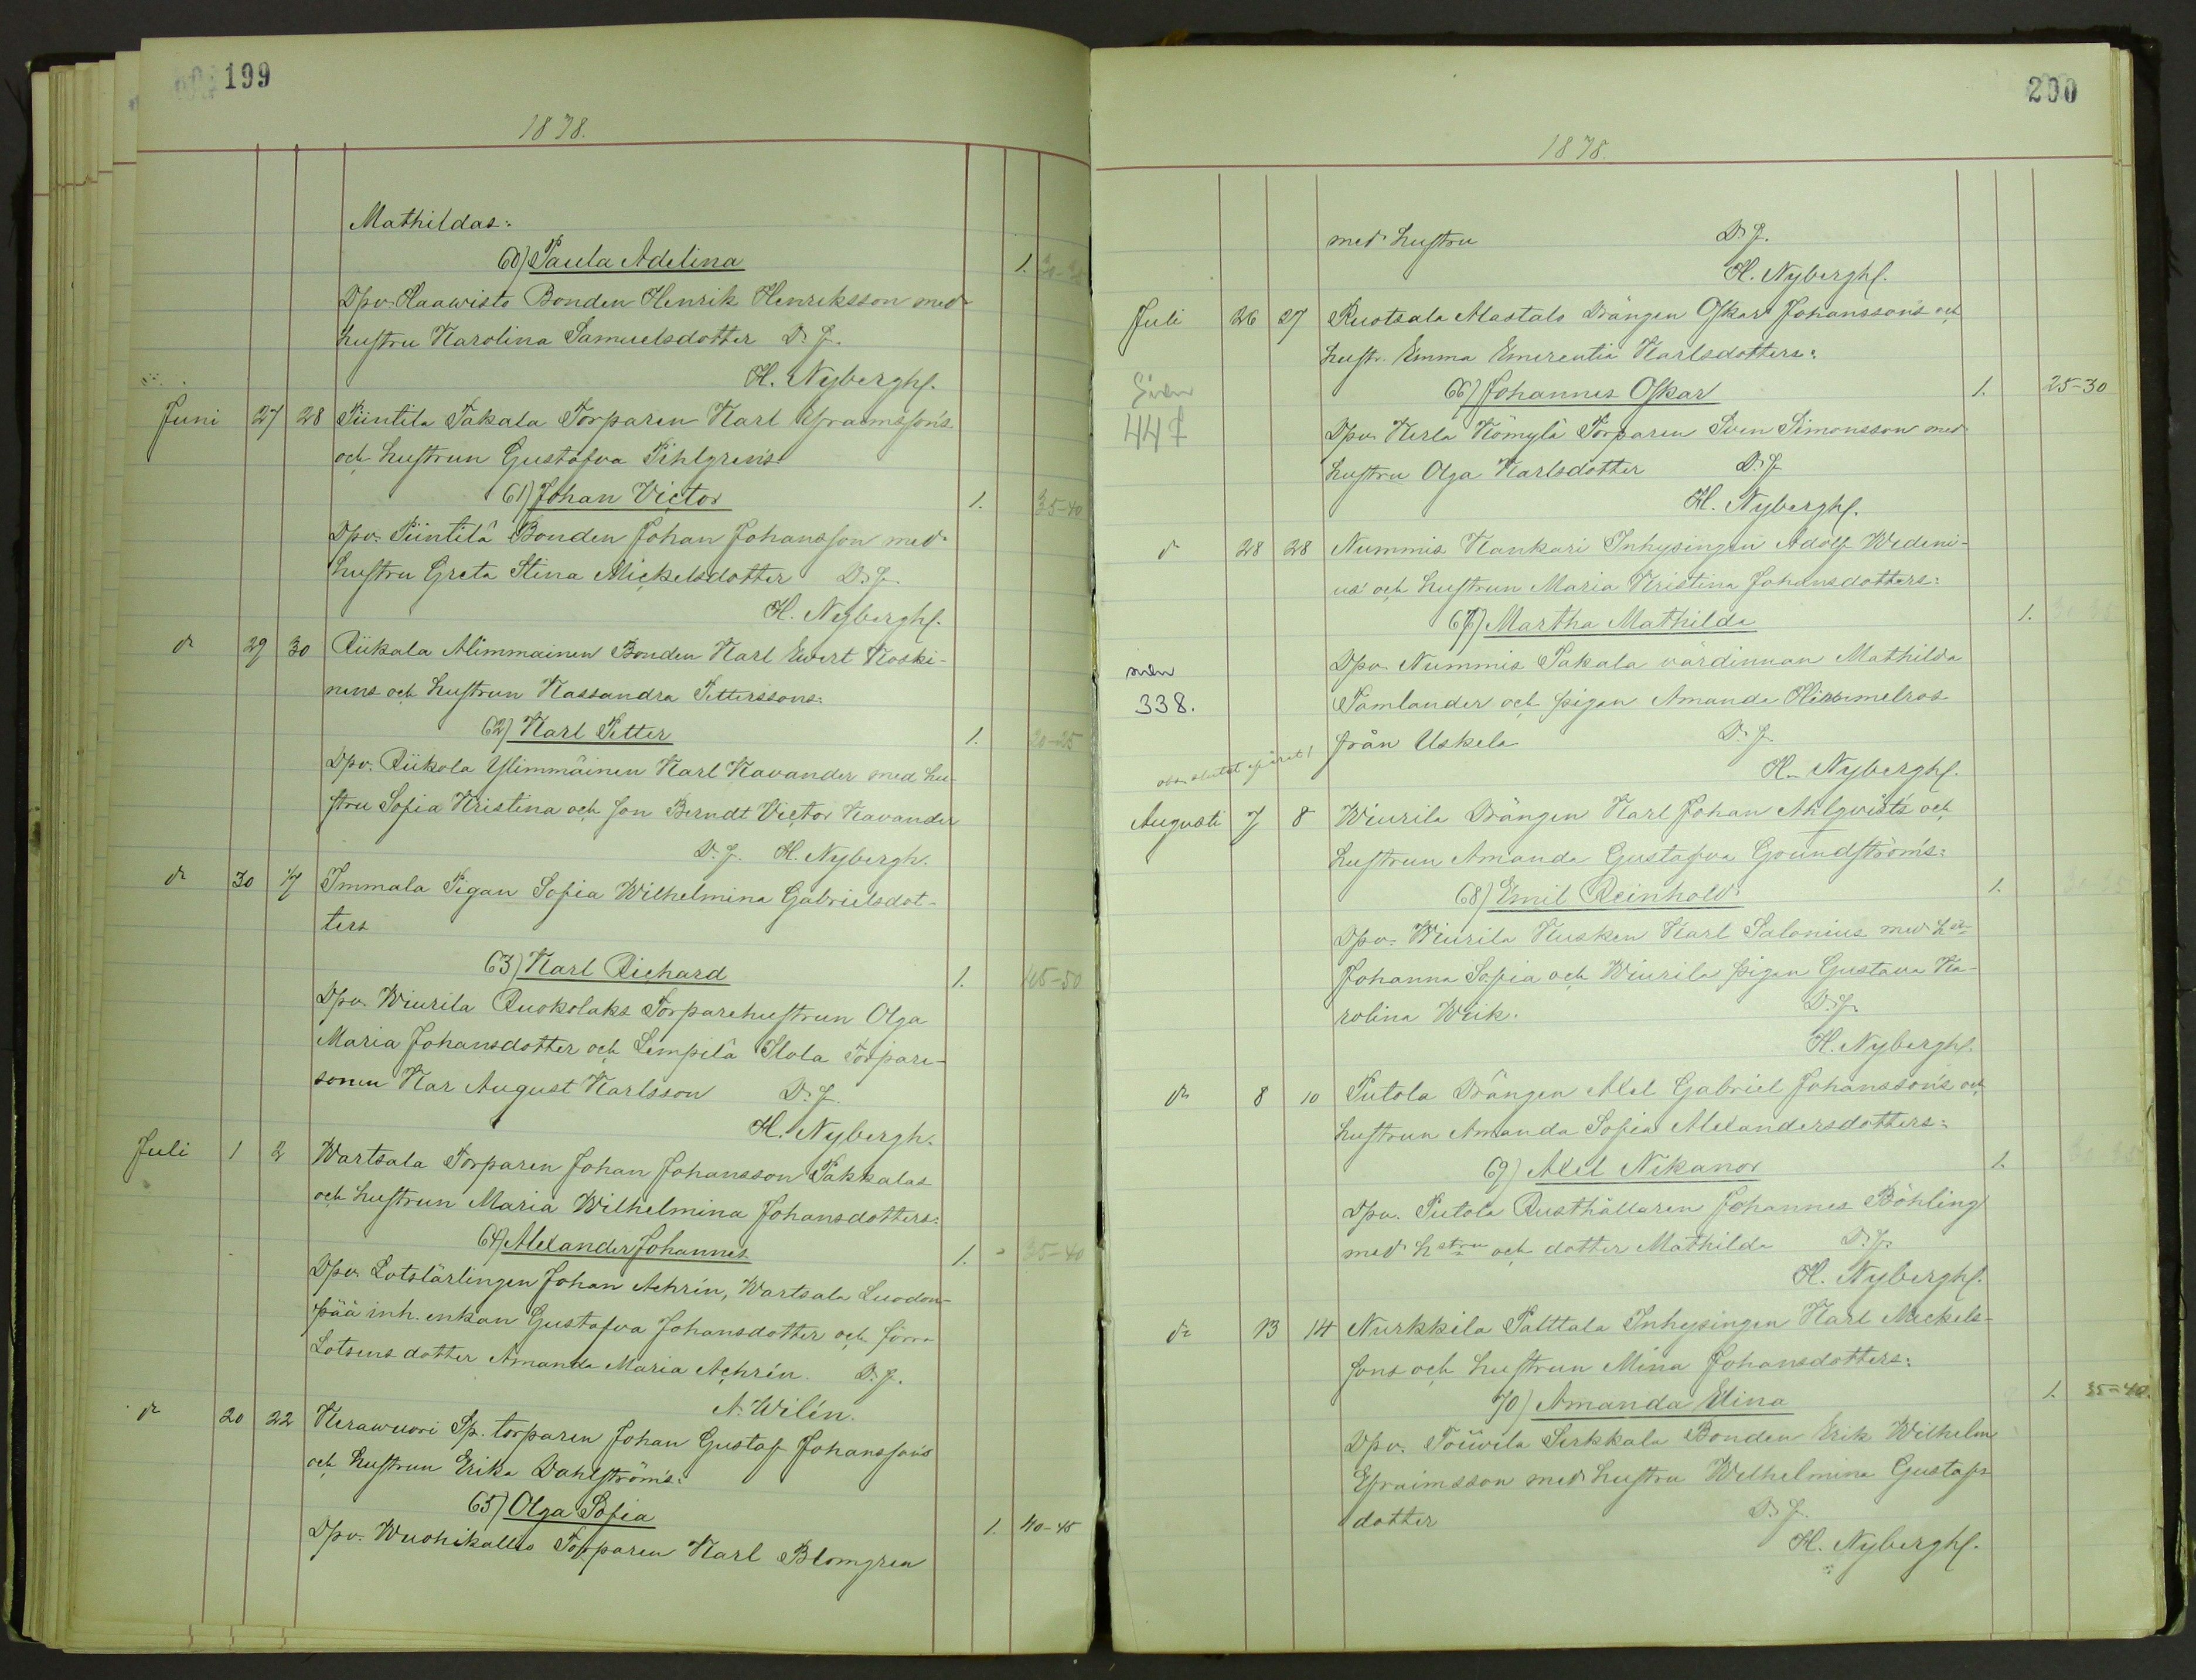 199
1878.
Mathildas:
60) Paula Adelina 1.
Dpv. Haawisto Bonden Henrik Henriksson med
hustru Karolina Samuelsdotter D. J.
H. Nybergh.
Juni 27 28 Piintila Takala Torparen Karl Efraimssons
och hustrun Gustafva Pihlgrens
61) Johan Victor 1. 35-40
Dpv. Piintilä Bonden Johan Johansson med
hustru Greta Stina Mickelsdotter D. J.
H. Nybergh.
dr 29 30 Riikala Alimmainen Bonden Karl Evert Koski-
nens och hustrun Kassandra Petterssons:
62) Karl Petter 1. 20-25
Dpv. Riikola Ylimmäinen Karl Kavander med hu-
stru Sofia Kristina och son Berndt Victor Kavander
D. J. H. Nybergh.
dr 30 1/7 Immala Pigan Sofia Wilhelmina Gabrielsdot-
ters
63) Karl Richard 1. 45-50
Dpv. Wiurila Ruokolaks Torparehustrun Olga
Maria Johansdotter och Lempilä Ilola Torpare-
sonen Kar August Karlsson D. J.
H. Nybergh.
Juli 1 2 Wartsala Torparen Johan Johansson Pakkalas
och hustrun Maria Wilhelmina Johansdotters:
64) Alexander Johannes 1. 35-40
Dpv. Lotslärlingen Johan Achrén, Wartsala Luodon-
pää inh. enkan Gustafva Johansdotter och förra
Lotsens dotter Amanda Maria Achrén. D. J.
A. Wilén.
dr 20 22 Kerawuori Sp. torparen Johan Gustaf Johanssons
och hustrun Erika Dahlströms:
65) Olga Sofia 1. 40-45
Dpv. Wuohikallio Torparen Karl Blomgren
200
1878.
med hustru D. J.
H. Nybergh.
Juli 26 27 Ruotsala Alastalo Drängen Oskar Johanssons och
hustr. Emma Emerentia Karlsdotters:
66) Johannes Oskar 1. 25-30
447
Dpv. Kerla Kömylä Torparen Sven Simonsson med
hustru Olga Karlsdotter D. J.
H. Nybergh.
dr 28 28 Nummis Kankari Inhysingen Adolf Wideni-
us' och hustrun Maria Kristina Johansdotters:
67) Martha Mathilda 1.
Dpv. Nummis Takala värdinnan Mathilda
338. Pamlander och pigan Amanda Himmelros
från Uskela D. J.
H. Nybergh.
Augusti 7 8 Wiurila Drängen Karl Johan Ahlqvists och
hustrun Amanda Gustafva Grundströms:
68) Emil Reinhold 1.
Dpv. Wiurila Kusken Karl Salonius med h
Johanna Sofia och Wiurila pigan Gustava Ka-
rolina Wiik. D. J.
H. Nybergh.
dr 8 10 Putola Drängen Axel Gabriel Johanssons och
hustrun Amanda Sofia Alexandersdotters:
69) Axel Nikanor 1.
Dpv. Putola Rusthållaren Johannes Böhling
med hstru och dotter Mathilda D. J.
H. Nybergh.
dr 13 14 Nurkkila Palttala Inhysingen Karl Mickels-
sons och hustrun Mina Johansdotters:
70) Amanda Elina 1. 35-40.
Dpv. Toiwila Sirkkala Bonden Erik Wilhelm
Efraimsson med hustru Wilhelmina Gustafs
dotter D. J.
H. Nybergh.